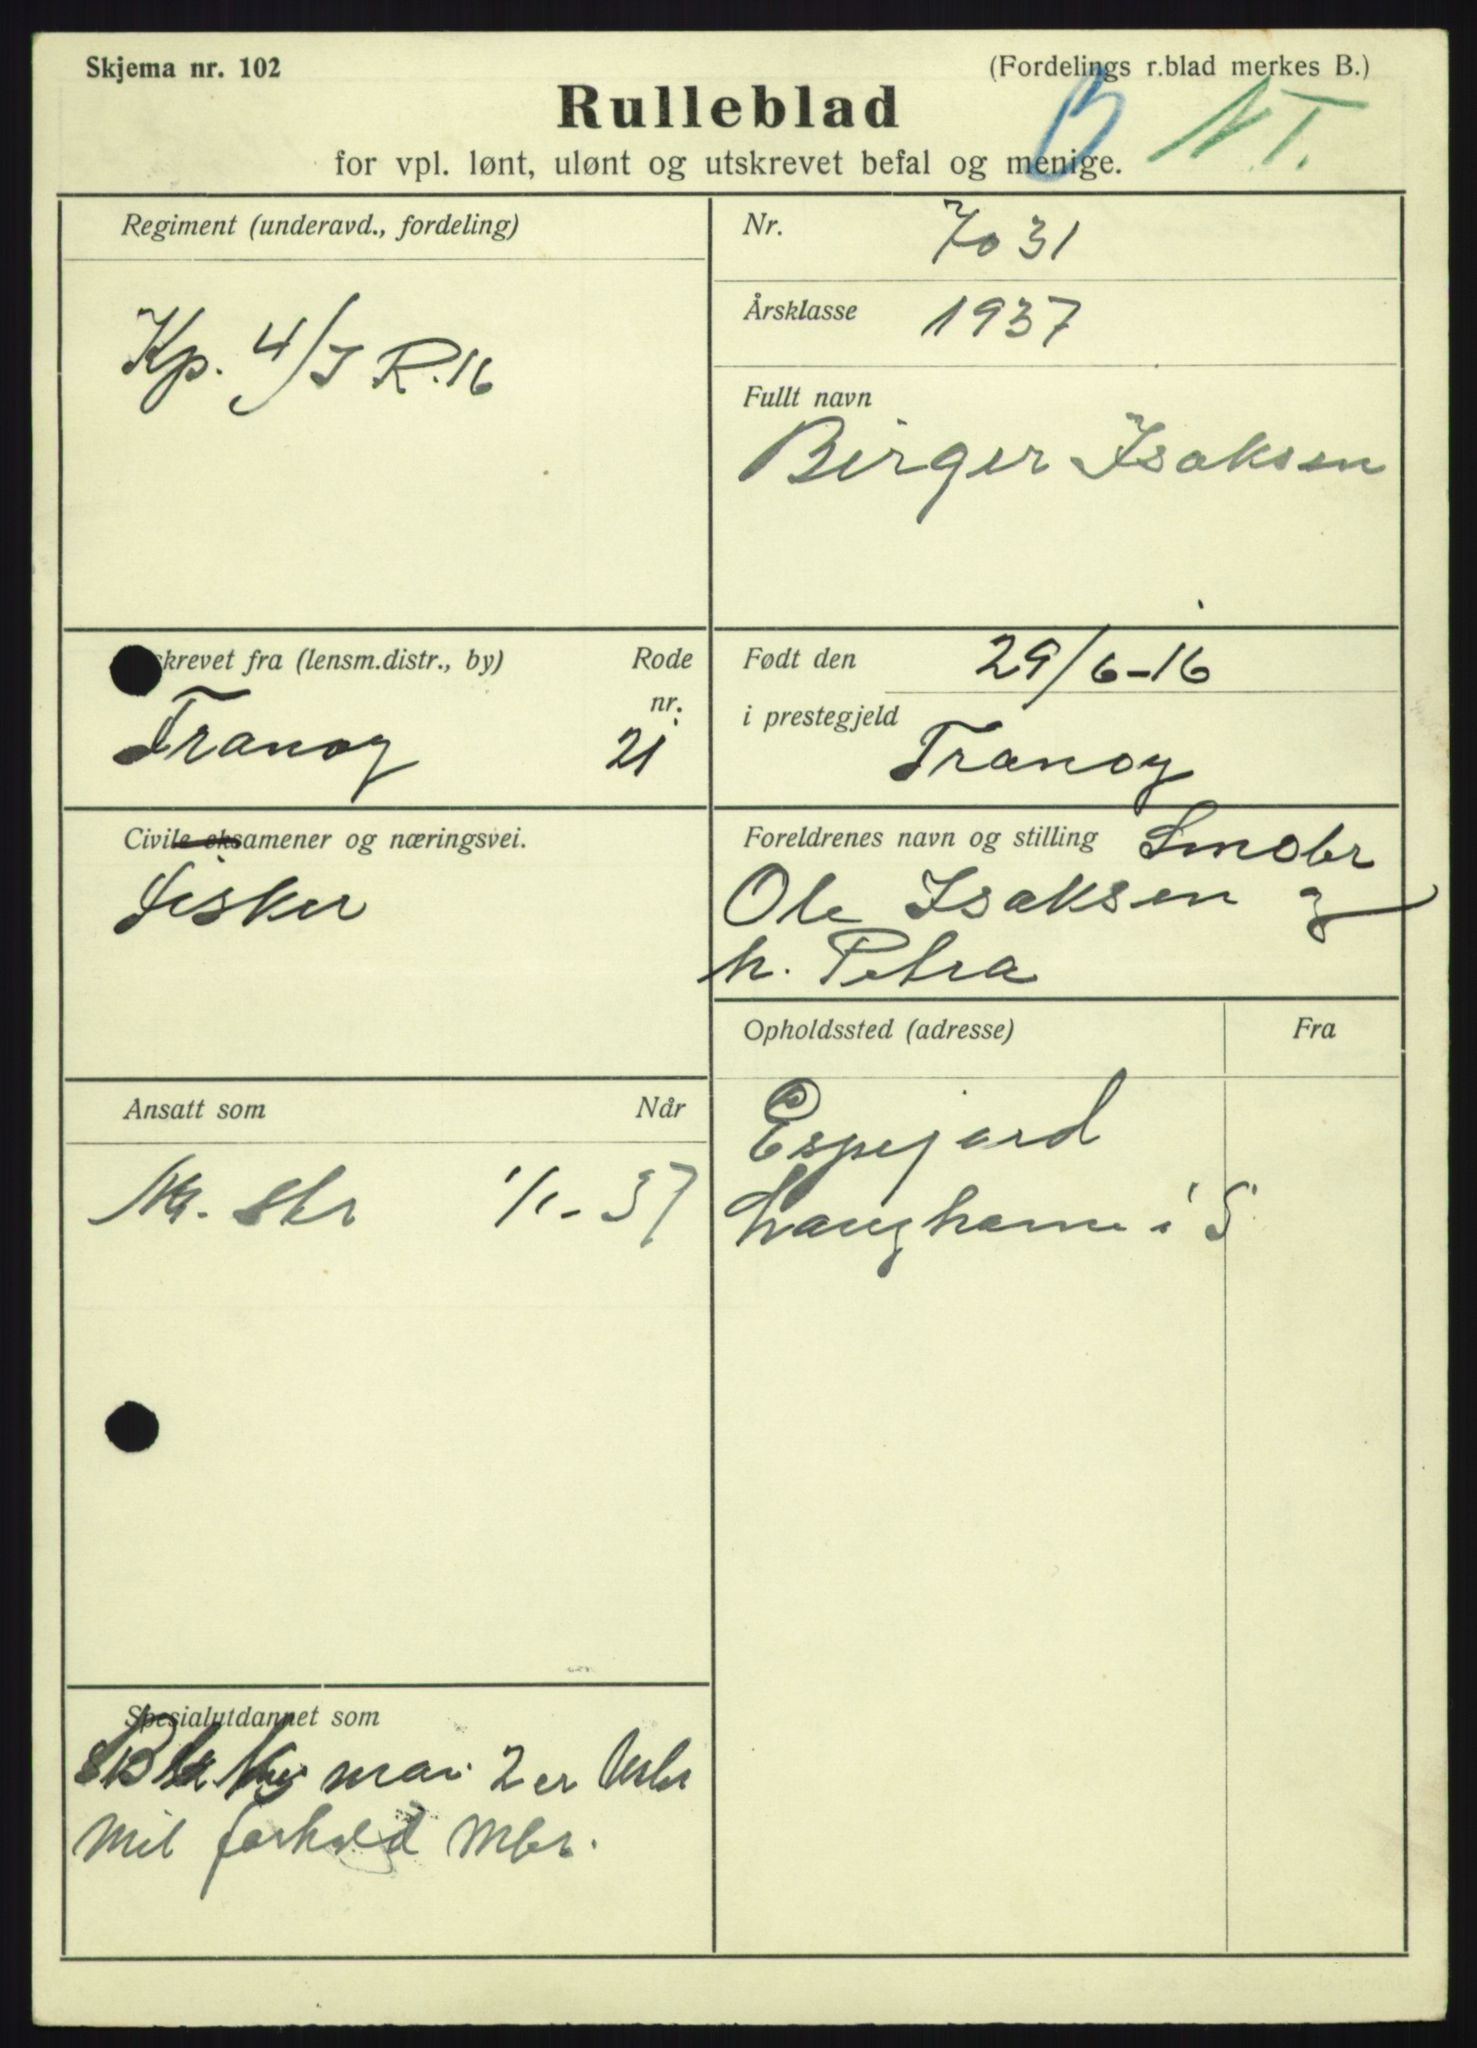 Skjema nr. 102
(Fordelings r.blad merkes B.)
Rulleblad
B NT.
for vpl. lønt, ulønt og utskrevet befal og menige.
Regiment (underavd., fordeling)
Kp. 4/I R.16
Nr. 7031
Årsklasse 1937
Fullt navn
Birger Isaksen
skrevet fra (lensm.distr., by) Rode nr.
Tranøy 21
Født den 29/6-16
i prestegjeld
Tranøy
Civile eksamener og næringsvei.
Fisker
Foreldrenes navn og stilling Småbr
Ole Isaksen og
h. Petra
Opholdssted (adresse) Fra
Espejord
Langhamn i S
Ansatt som Når
1/1-37
Spesialutdannet som
mar. 2 er
Mil forhold Mbr.